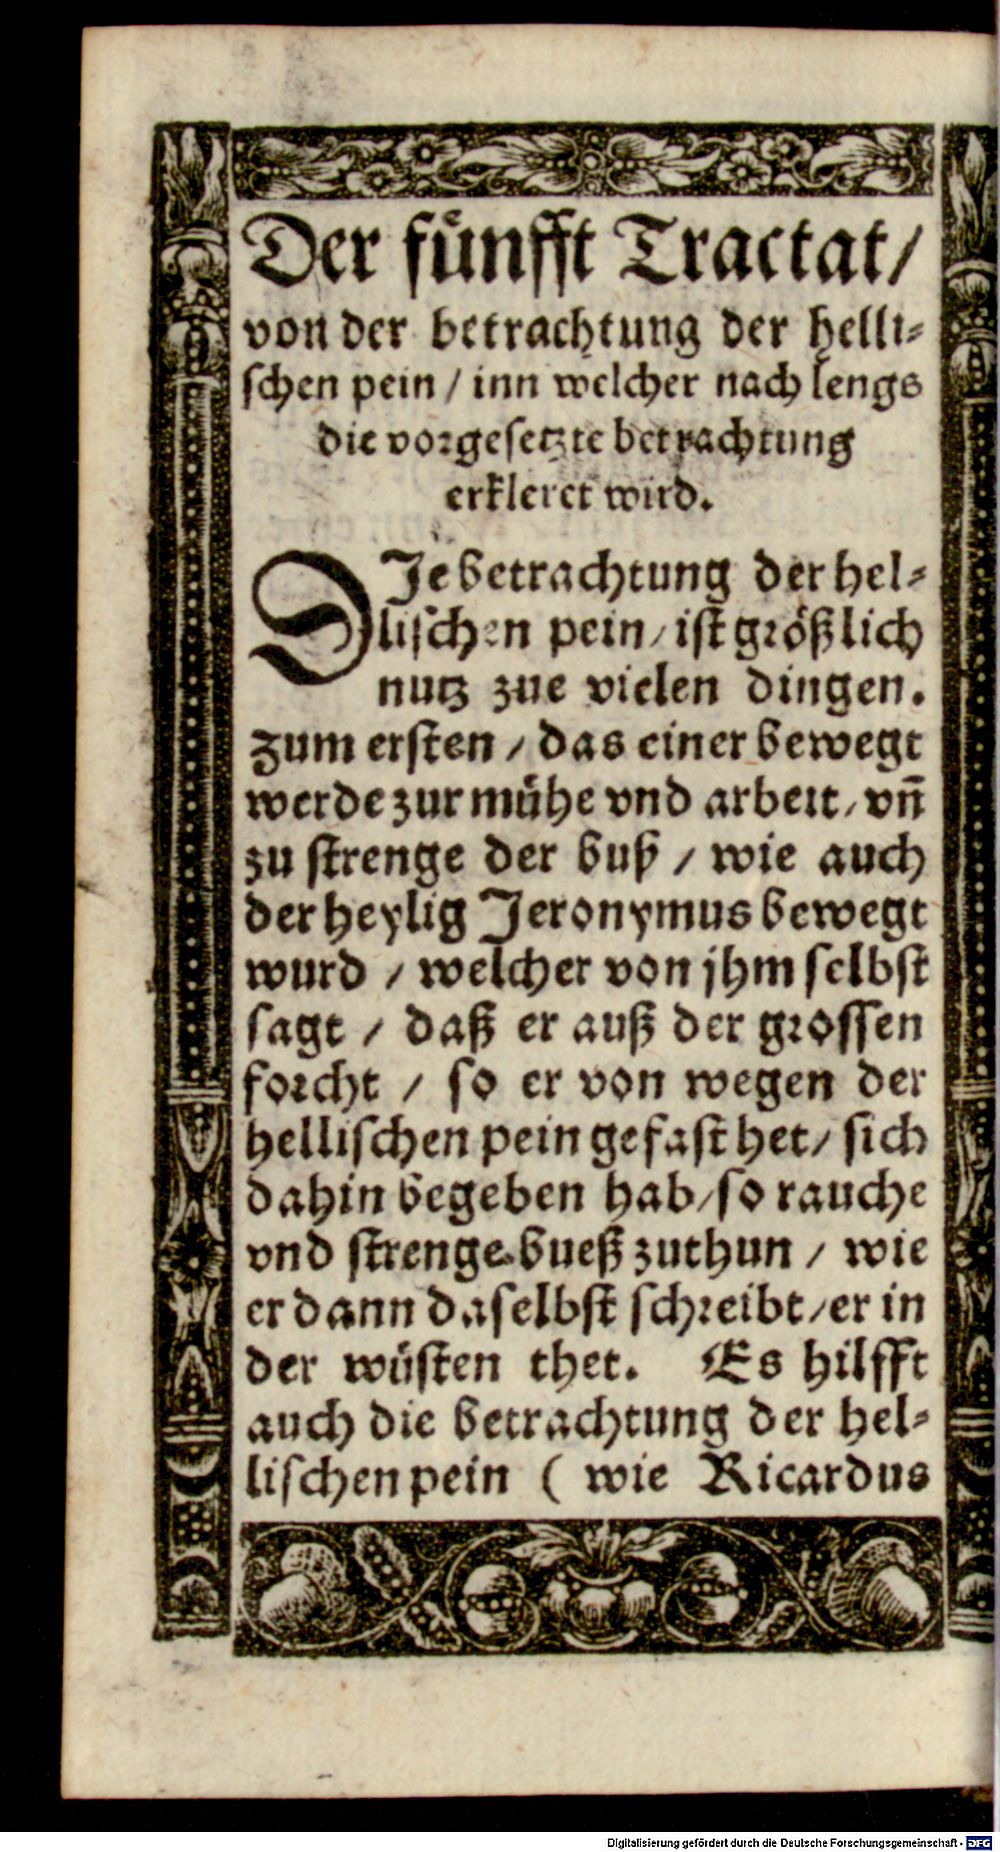 Der fünfft Tractat/
von der betrachtung der helli⸗
schen pein / inn welcher nach lengs
die vorgesetzte betrachtung
erkleret wird.
DIe betrachtung der hel⸗
lischen pein/ ist größlich
nutz zue vielen dingen.
Zum ersten / das einer bewegt
werde zur mühe vnd arbeit/ vñ
zu strenge der buß / wie auch
der heylig Jeronymus bewegt
wurd / welcher von jhm selbst
sagt / daß er auß der grossen
forcht / so er von wegen der
hellischen pein gefast het/ sich
dahin begeben hab/ so rauche
vnd strenge bueß zuthun / wie
er dann daselbst schreibt/ er in
der wüsten thet. Es hilfft
auch die betrachtung der hel⸗
lischen pein ( wie Ricardus
Digitalisierung gefördert durch die Deutsche Forschungsgemeinschaft - DFG